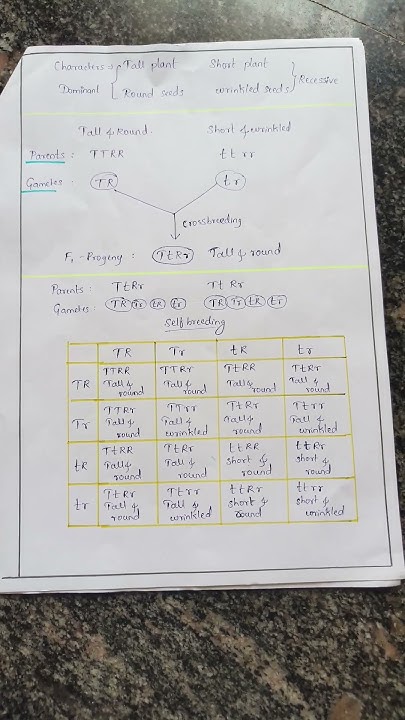 Characters → Tall plant Short plant
Dominant Round seeds wrinkled seeds Recessive
Tall & Round. Short & wrinkled
Parents : TTRR tt rr
Gametes : TR tr
Crossbreeding
F₁ - Progeny : TtRr Tall & round
Parents : TtRr Tt Rr
Gametes : TR Tr tR tr TR Tr tR tr
Selfbreeding
TR Tr tR tr
TR TTRR Tall & round TTRr Tall & round TtRR Tall & round TtRr Tall & round
Tr TTRr Tall & round TTrr Tall & wrinkled TtRr Tall & round Ttrr Tall & wrinkled
tR TtRR Tall & round TtRr Tall & round ttRR short & round ttRr short & round
tr TtRr Tall & round Ttrr Tall & wrinkled ttRr short & round ttrr short & wrinkled